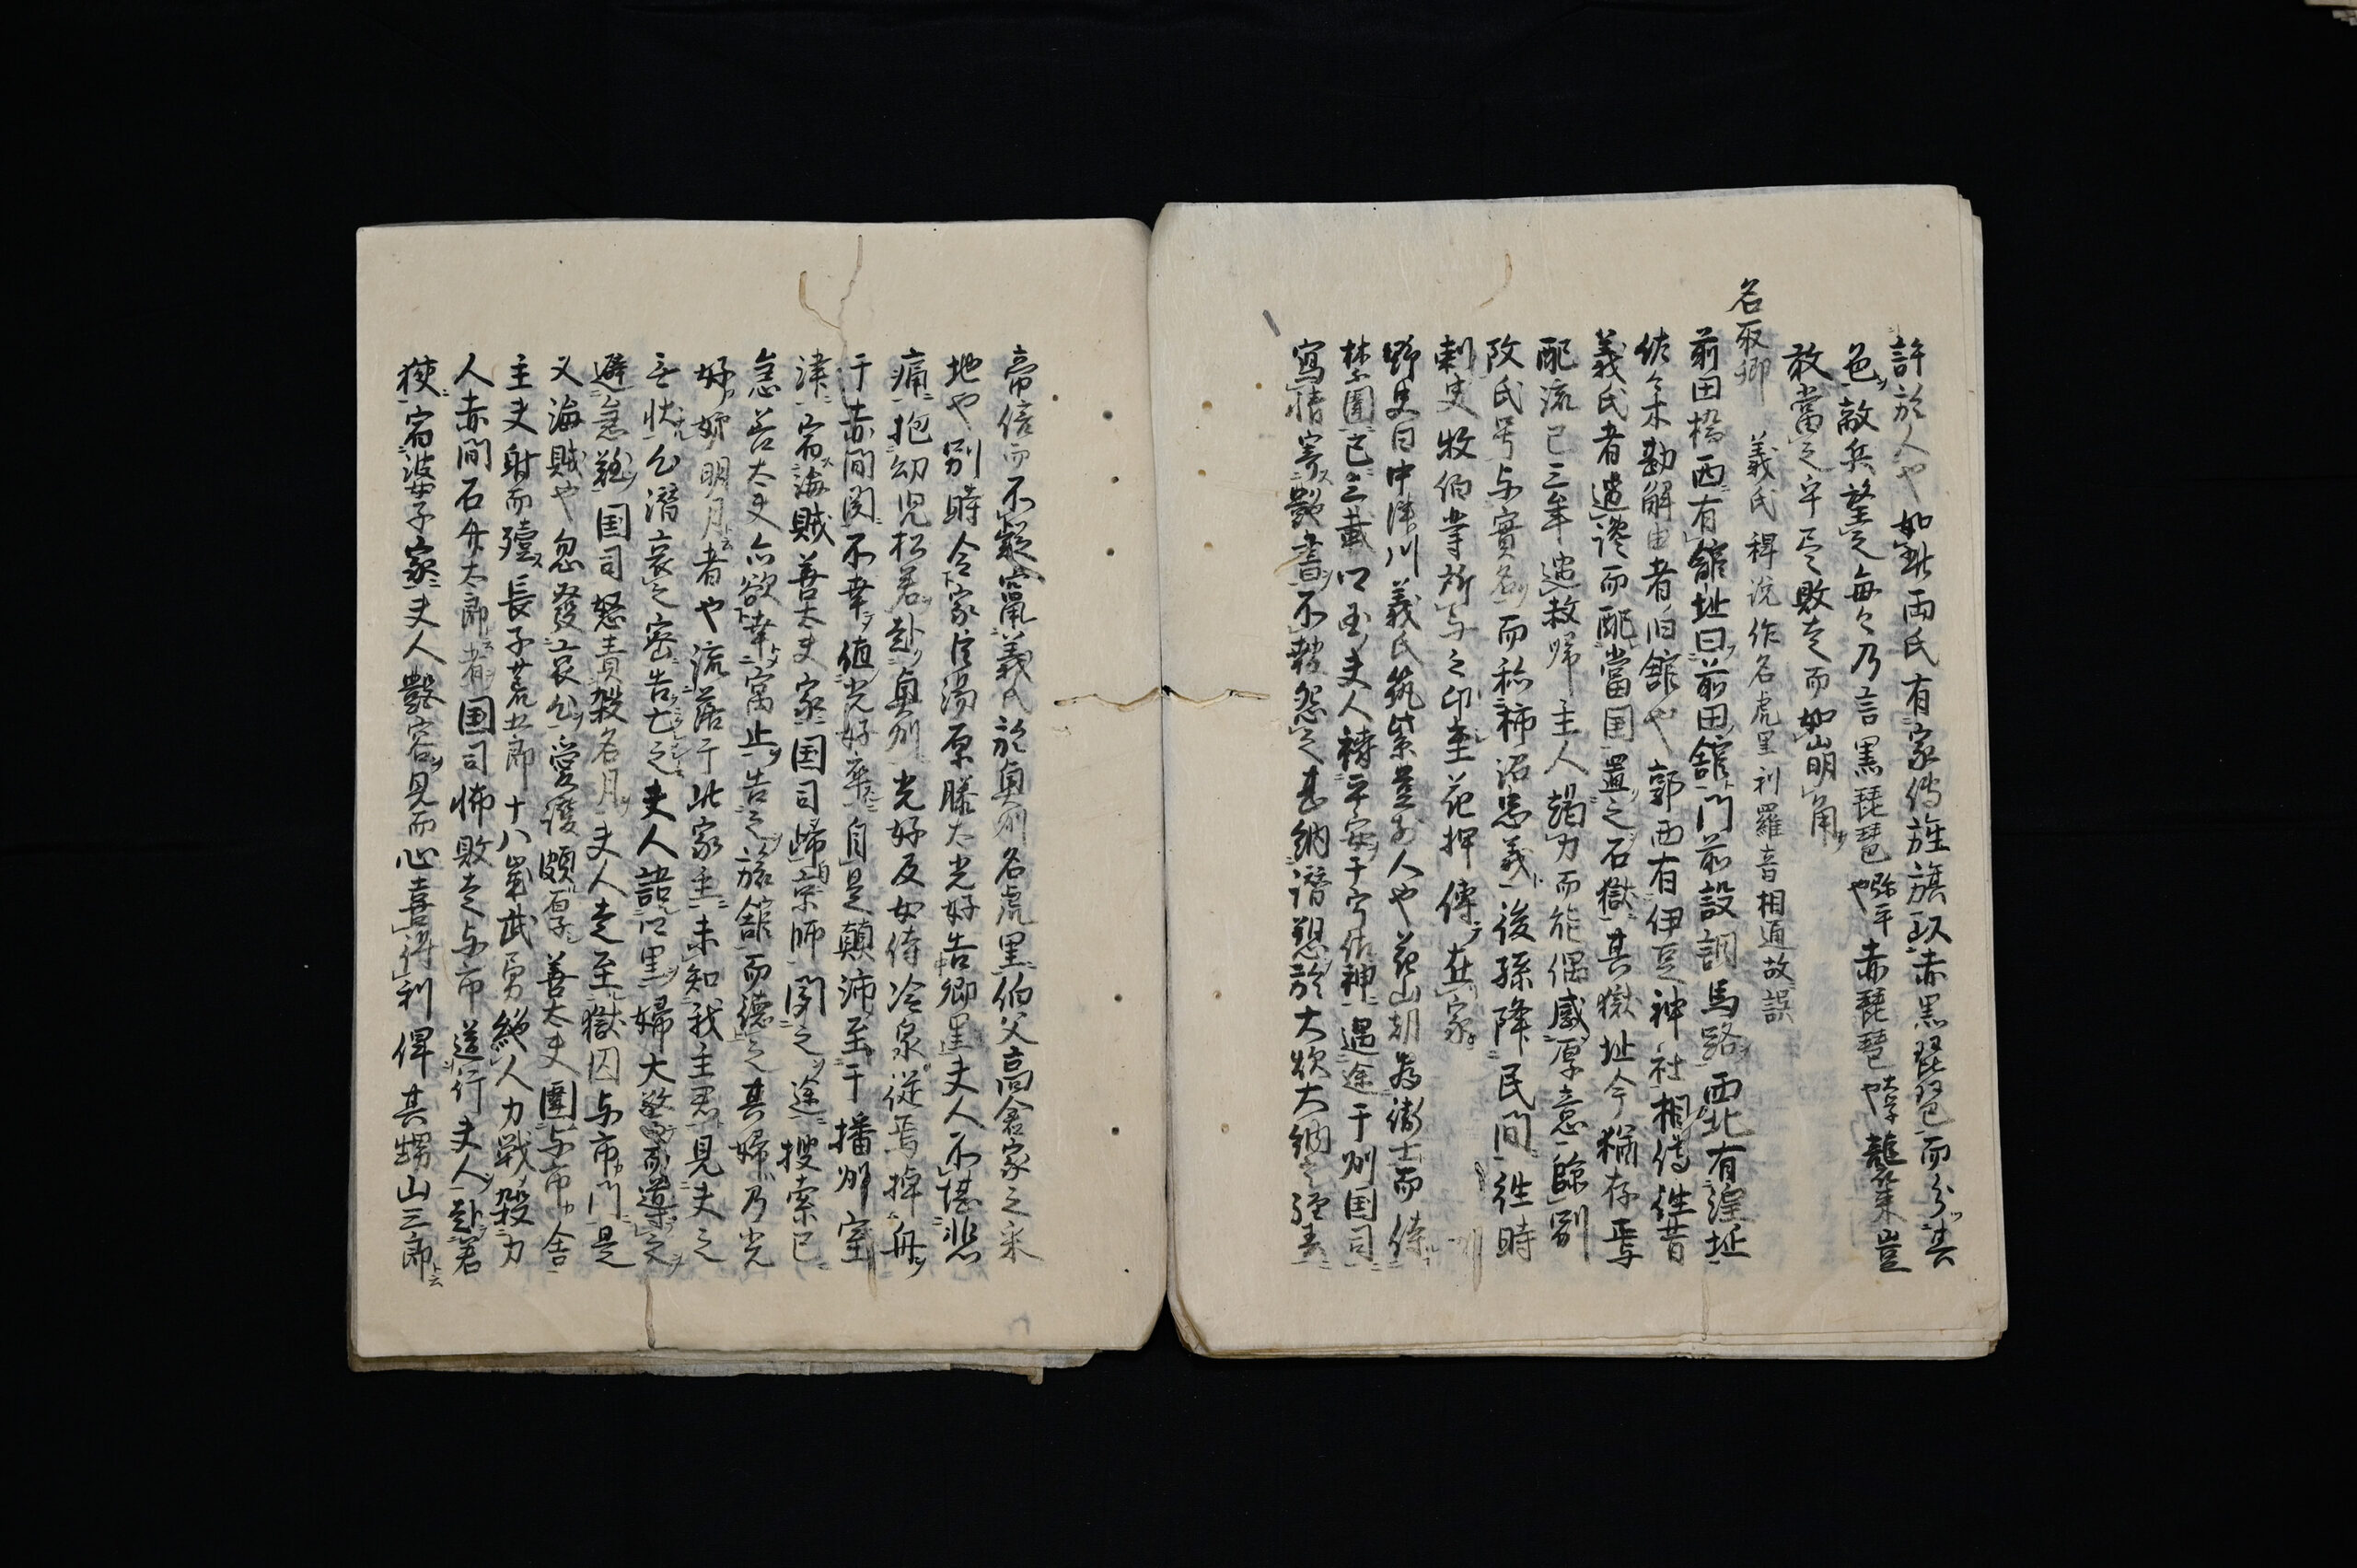 許於人也如此両氏有家傳旌旗以赤黒琵琶而分其
色敵兵望之毎々乃言黒琵琶弥平也赤琵琶大学也龍来豈
敢當之乎尽敗走而如崩角
名取郷 義氏稗説作名虎里利羅音相通故誤
前田橋西有舘址曰前田舘門前設調馬路西北有湟址
佐々木勘解由者旧舘也郭西有伊豆神社相傳往昔
義氏者遭讒而配當国置之石獄其獄址今猶存焉
配流已三年遭赦帰主人竭力而能偶感厚意臨別
改氏号与實名而称柿沼忠義後孫降民間往時
刺史牧伯掌所与之印章花押傳在家
野史曰中津川義氏筑紫豊前人也花山朝為衛士而侍
禁闈已三載口玉夫人祷平安于宇佐神遇途于州国司
寫情寄艶書不報怨之甚納譖愬於大炊大納之経春
帝信而不疑竄義氏於奥州名虎里伯父高倉家之采
地也別時令家臣湯原勝太光好告郷里夫人不堪悲
痛抱幼児松若赴奥州光好及女侍冷泉従焉掉舟
于赤間関不幸値光好卒自是顛沛至于播州室
津宿海賊善太夫家国司帰自京師聞之途捜索已
急善太夫亦欲幸寓止告之旅舘而徳之其婦乃光
好姉明月云者也流落于此家主未知我主君見夫之
无状乞潜哀之密告亡之夫人詰口里婦大敬而導之
避急難国司怒責殺名月夫人走至獄囚与市門是
又海賊也忽發哀乞愛護頗厚善太夫囲与市舎
主夫射而殪長子荒五郎十八歳武勇絶人力戦殺力
人赤間石允太郎者国司怖敗走与市送行夫人赴若
狭宿婆子家夫人艶容見而心喜得利俾其甥山三郎云